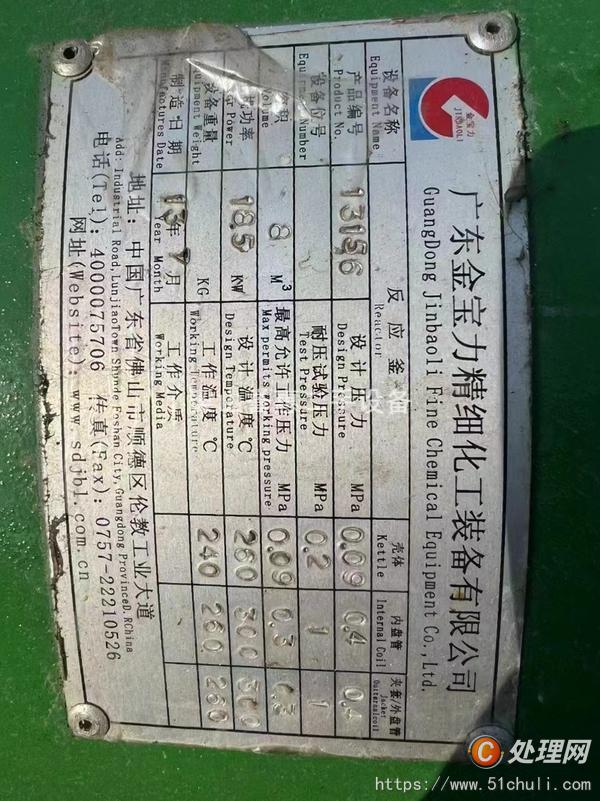 金宝力
JINBAOLI
广东金宝力精细化工装备有限公司
GuangDong Jinbaoli Fine Chemical Equipment Co.,Ltd.
设备名称 反应釜 壳体 内盘管 夹套/外盘管
Equipment Name Reactor Kettle Internal Coil Jacket
产品编号 13156 设计压力 MPa 0.09 0.4 0.4
Product No. Design Pressure
设备位号 耐压试验压力 MPa 0.2 1 1
Equipment Number Test Pressure
8 M³ 最高允许工作压力 MPa 0.09 0.3 0.3
Max permits working pressure
功率 18.5 KW 设计温度 ℃ 260 300 300
Power Design Temperature
设备重量 KG 工作温度 ℃ 240 260 260
Equipment Weight Working Temperature
制造日期 13年 月 工作介质
Manufactures Date Year Month Working Media
地址：中国广东省佛山市顺德区伦教工业大道
Add: Industrial Road, LunjiaoTown Shunde Foshan City, Guangdong Province
电话(Tel): 4000075706 传真(Fax): 0757-22210526
网址(Website): www.sdjbl.com.cn
设备
处理网
https://www.51chuli.com/